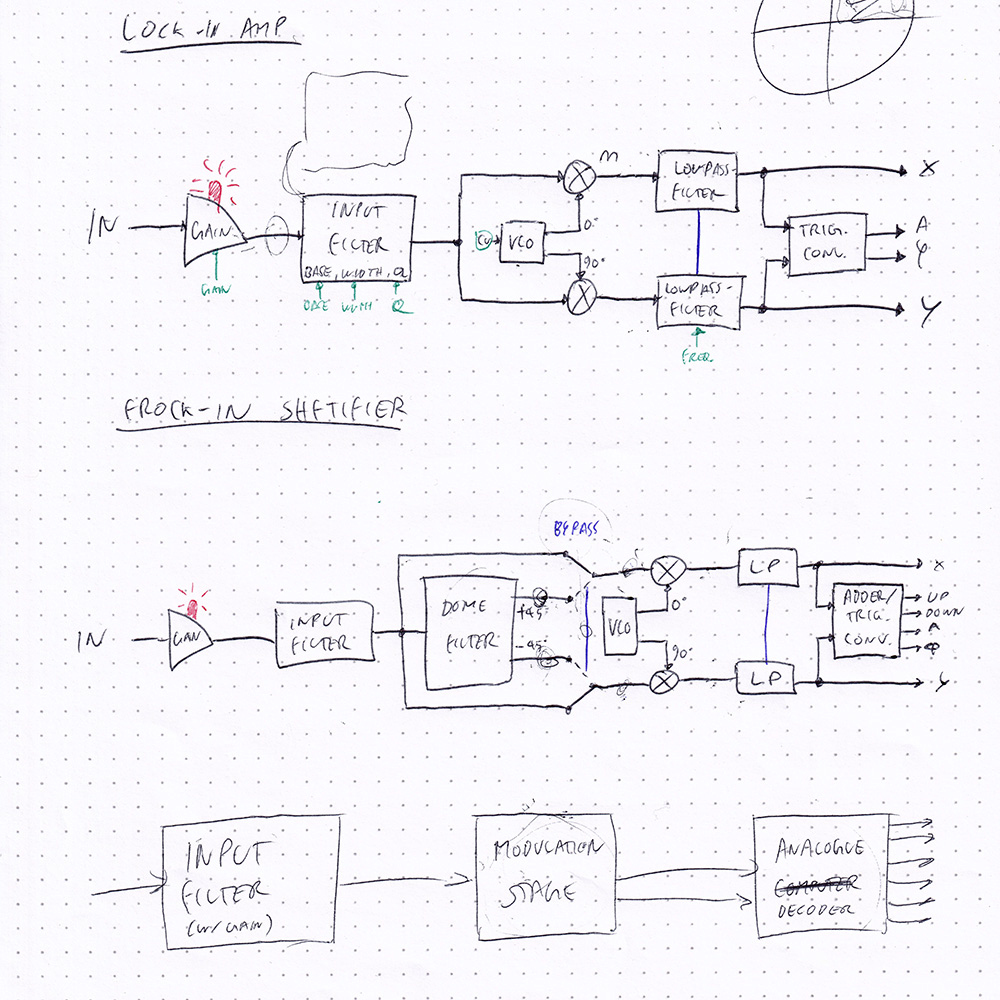 LOCK-IN AMP
IN
GAIN
GAIN
INPUT
FILTER
BASE, WIDTH, Q
BASE WIDTH Q
CV
VCO
0°
90°
M
LOWPASS-
FILTER
LOWPASS-
FILTER
FREQ
TRIG.
CONV.
X
A
φ
Y
FROCK-IN SHFTIFIER
IN
GAIN
INPUT
FILTER
DOME
FILTER
+45°
-45°
BYPASS
VCO
0°
90°
LP
LP
ADDER/
TRIG.
CONV.
X
UP
DOWN
A
Φ
Y
INPUT
FILTER
(W/ GAIN)
MODULATION
STAGE
ANALOGUE
COMPUTER
DECODER